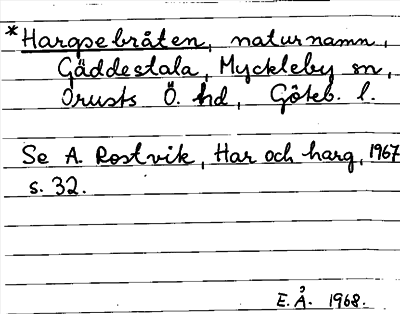 *Hargsebråten, naturnamn,
Gäddestala, Myckleby sn,
Orusts Ö. hd, Göteb. l.
Se A. Rostvik, Har och harg, 1967
s. 32.
E. Å. 1968.